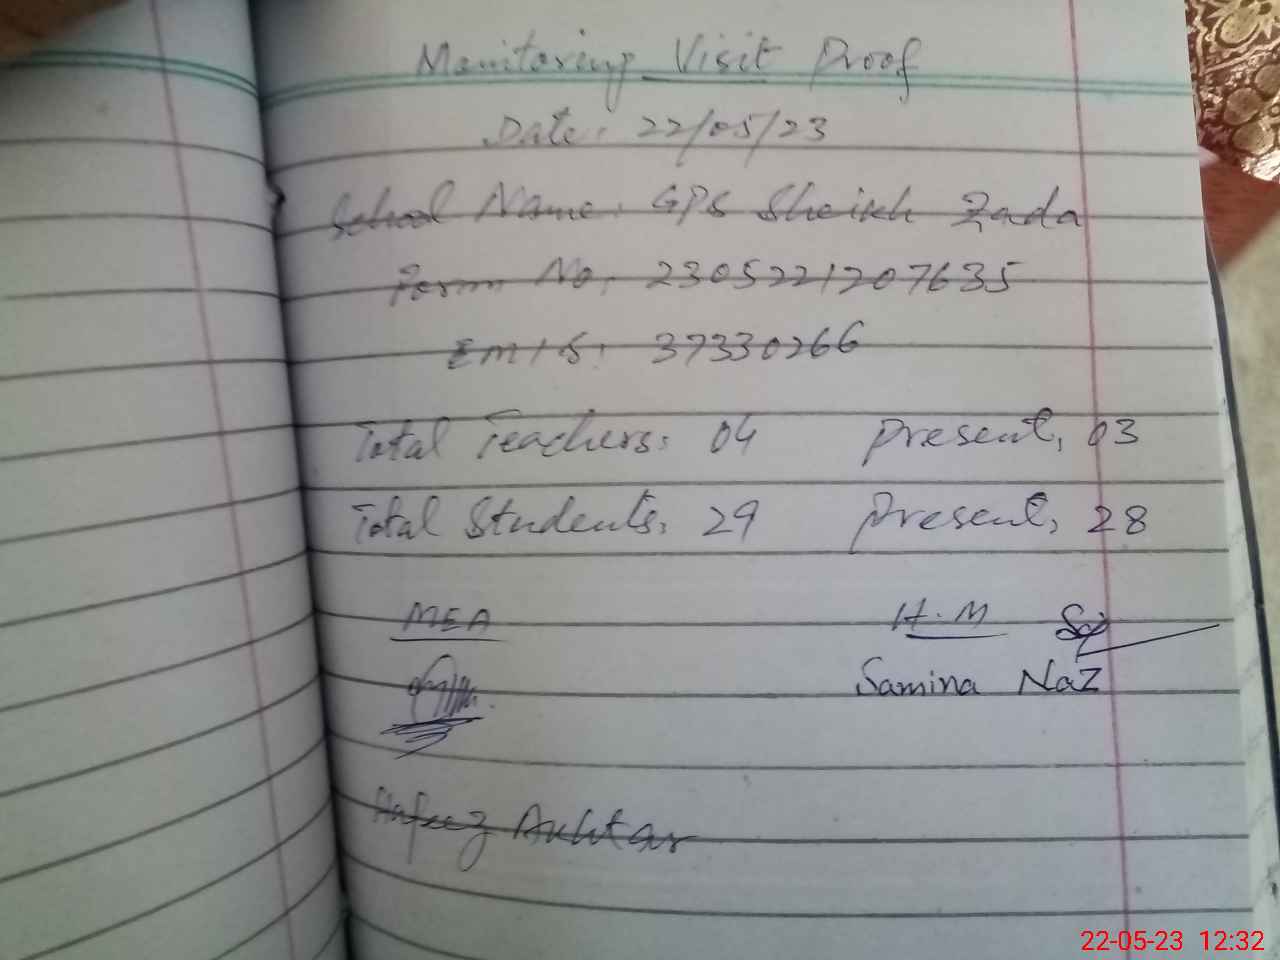 Monitoring Visit Proof
Date: 22/05/23
School Name: GPS Sheikh Zada
Form No: 2305221207635
EMIS: 37330266
Total Teachers: 04 Present, 03
Total Students: 29 Present, 28
MEA H.M
Samina Naz
Hafeez Akhtar
22-05-23 12:32